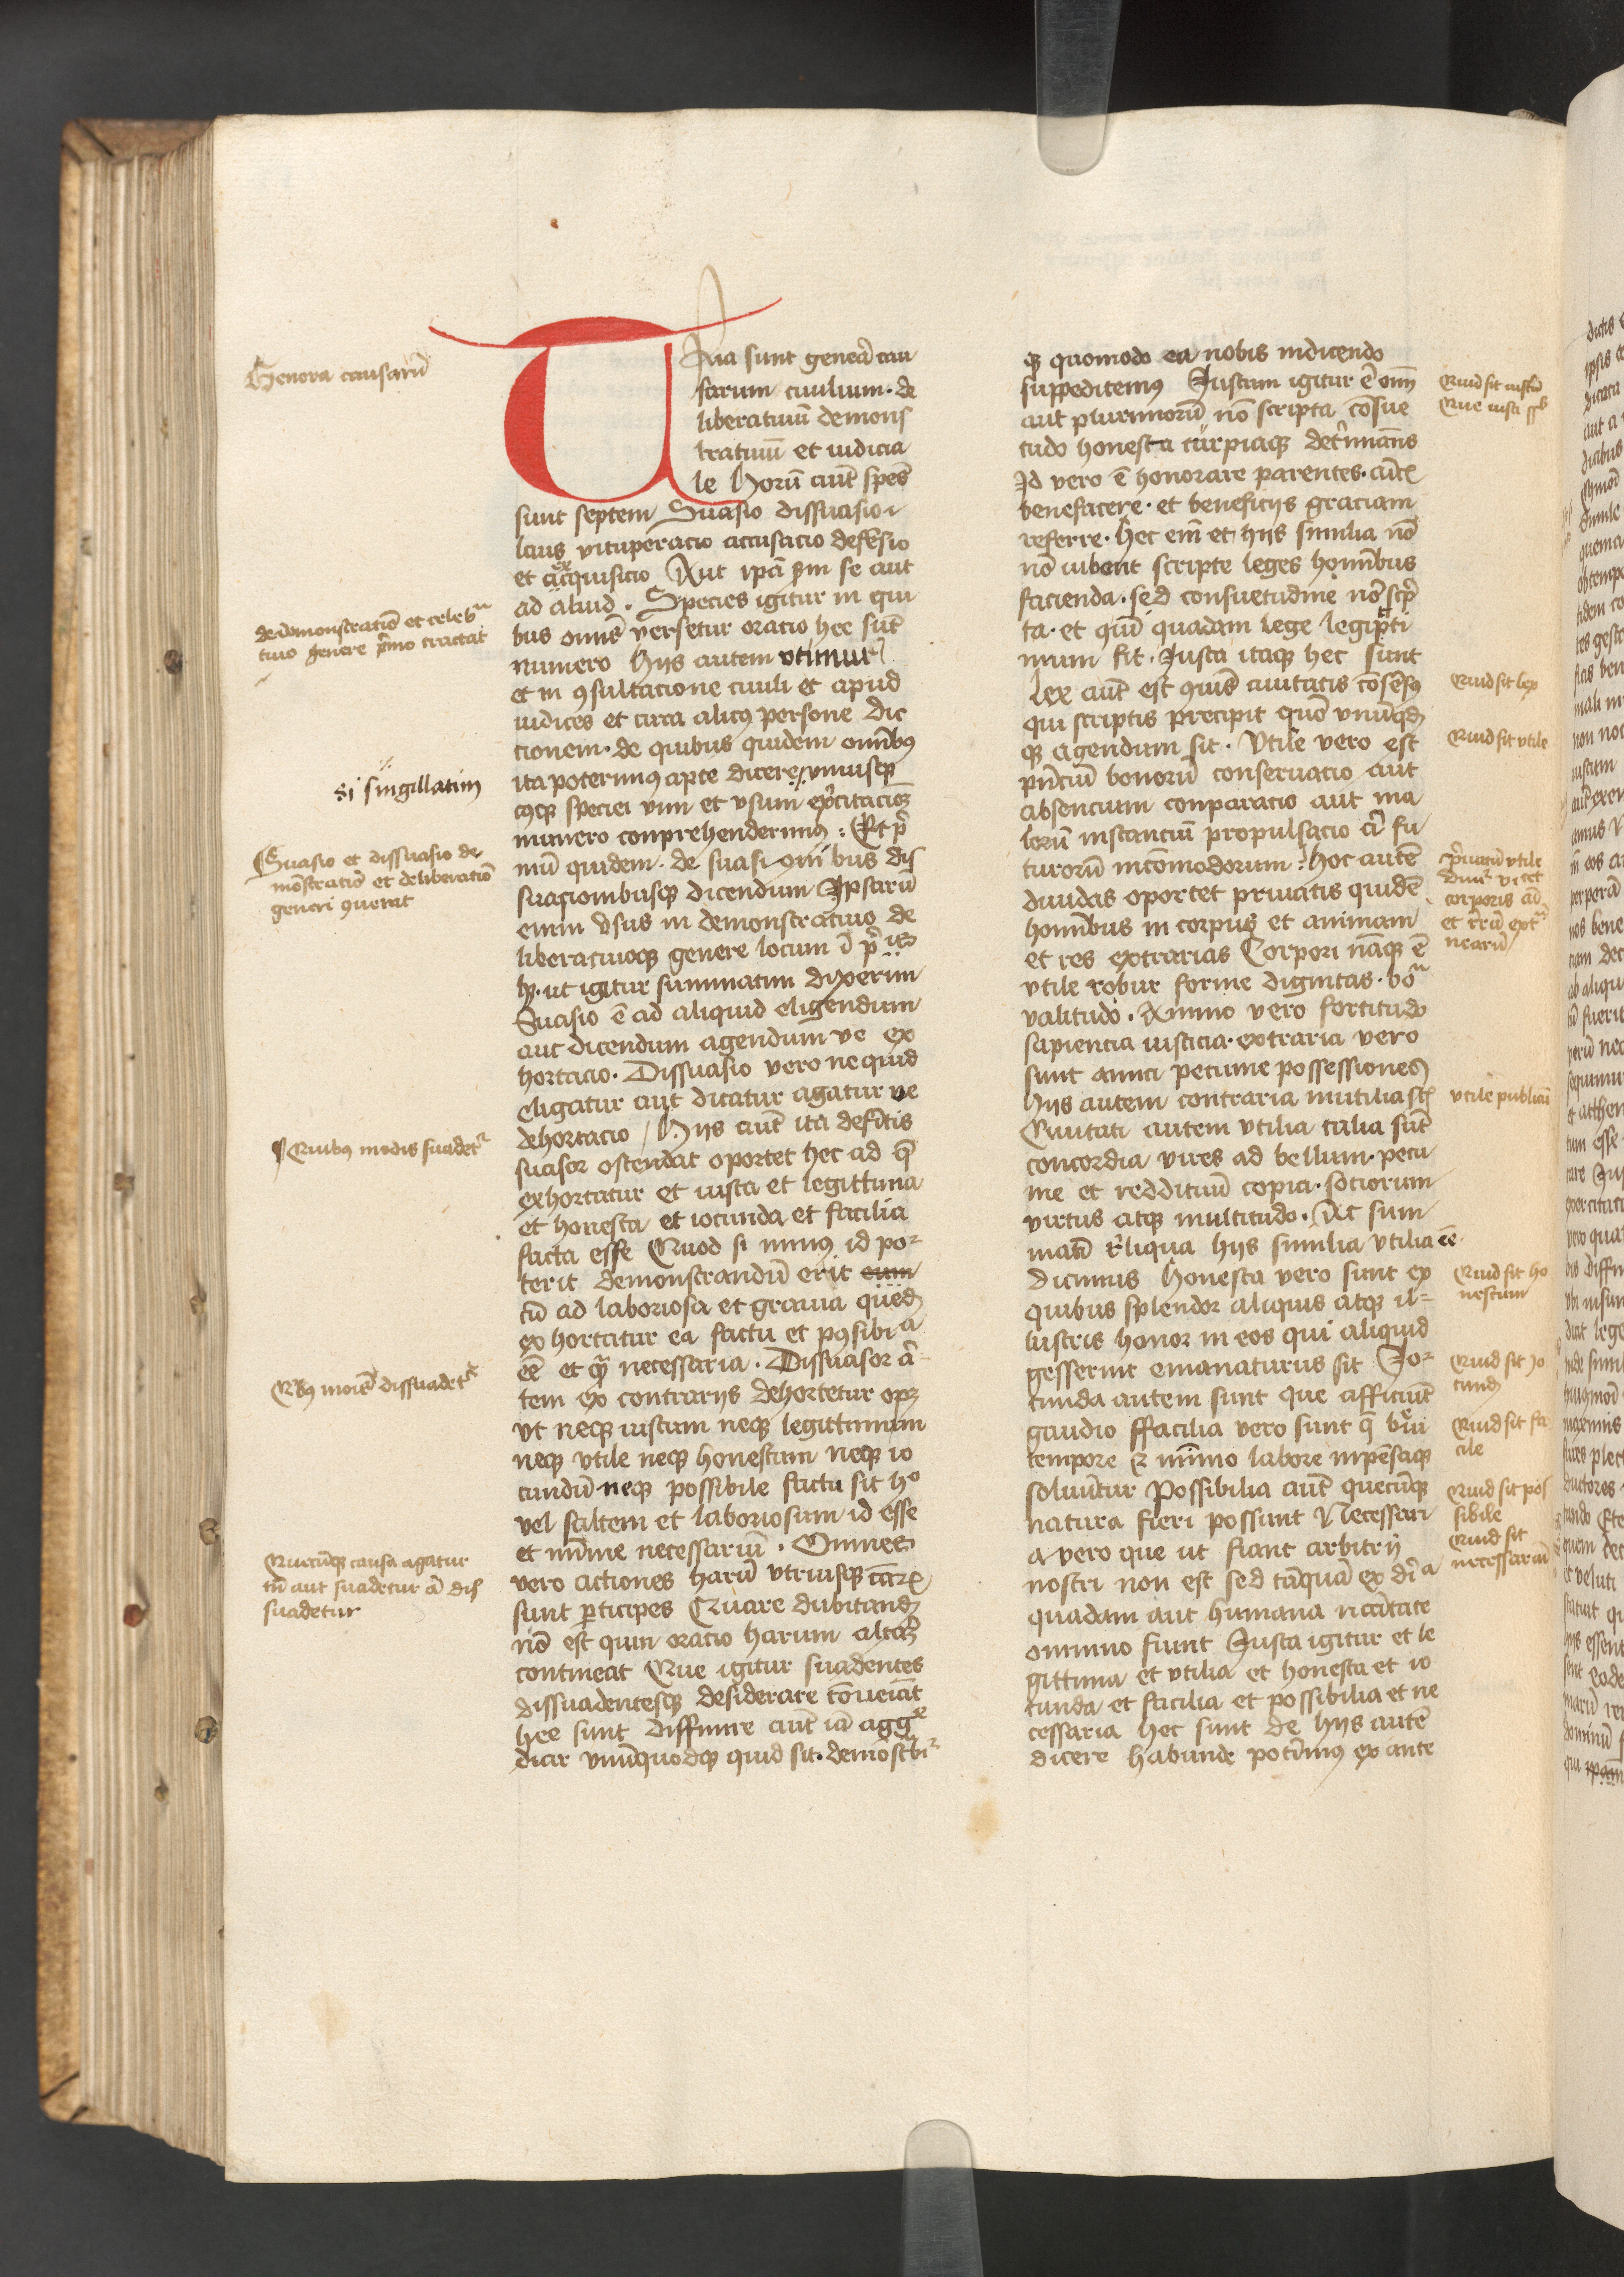 Genera causarū
de demonstratiō et celebͣ
tiuo genere p̄mo tractat
si singillatim
Suasio et dissuasio de
mōstratiō et deliberatiō
generi ꝯuenit
Quibꝰ modis suadetᷣ
Qͥbꝰ moīs dissuadetᷣ
Quecūqꝫ causa agatur
tū aut suadetur aū dis
suadetur
Tria sunt genera cau
sarum ciuilium· de
liberatiuū demons
tratiuū et iudicia
le Horū aūt spēs
sunt septem Suasio dissuasio
laus vituperacio accusacio defēsio
et exquisicio Aut ipā ꝑm se aut
ad aliud . Species igitur in qui
bus omīs versetur oratio hec sūt
numero Hijs autem vtimur
et in ꝯsultacione ciuili et apud
iudices et circa alicꝰ persone dic
tionem· de quibus quidem omībꝰ
ita poterimꝰ apte dicere vniusqꝫ
cꝰqꝫ speciei vim et vsum ex̄citacioꝫ
numero conprehenderimꝰ : Et p̄
mū quidem· de suasionibus dis
suasionibusqꝫ dicendum Ipsarū
enim vsus in demonstratiuo de
liberatiuoqꝫ genere locum ī p̄is
hꝫ· ut igitur summatim dixerim
Suasio ē ad aliquid eligendum
aut dicendum agendum ve ex
hortacio· Dissuasio vero ne quid
eligatur aut dicatur agatur ve
dehortacio / Hijs aūt ita defītis
suasor ostendat oportet hec ad q̄
exhortatur et iusta et legittima
et honesta et iocunda et facilia
facta esse Quod si minꝰ id po⸗
terit demonstrandū erit eum
cū ad laboriosa et grauia quedꝫ
ex hortatur ea factu et possibiͣ
eē et qͣ necessaria . Dissuasor aū⸗
tem ex contrarijs dehortetur opꝫ
vt neqꝫ iustum neqꝫ legittimum
neqꝫ vtile neqꝫ honestum neqꝫ io
cundū neqꝫ possibile factu sit hͦ
vel saltem et laboriosum id esse
et mīme necessariū . Omnes
vero actiones harū vtriusqꝫ carꝝ
sunt ꝑticipes Quare dubitandꝫ
nō est quin oratio harum alt̄aꝫ
contineat Que igitur suadentes
dissuadentesqꝫ desiderare cōueniāt
hee sunt Diffinire aūt iā aggͤ
diar vnūquodqꝫ quid sit· demōstᷣbiᷣ
qꝫ quomodo ea nobis indicendo
suppeditemꝰ Iustum igitur ē omī
aut plurimorū nō scripta cōsue
tudo honesta turpiaqꝫ det̄mināns
Id vero ē honorare parentes· amicꝭ
benefacere· et beneficijs graciam
referre· Hec em̄ et hijs similia nō
nō iubent scripte leges hominibus
facienda· sed consuetudine nō scp̄
ta· et quū quadam lege legipti
mum fit· Iusta itaqꝫ hec sunt
Lex aūt est ꝯmunis ciuitatis cōsēsꝰ
qui scriptis precipit quō vnūqdꝫ
qꝫ agendum sit· Vtile vero est
pn̄ciū bonorū conseruacio aut
absencium conparacio aut ma
lorū instanciū propulsacio aū fu
turorū incōmodorum : hoc autē
diuidas oportet priuatis quidē
hominibus in corpus et animam
et res extrarias Corpori nāqꝫ ē
vtile robur forme dignitas· boͣ
valitudo . Animo vero fortitudo
sapiencia iusticia· extraria vero
sunt amici pecunie possessiones
Hijs autem contraria inutilia st̄
Ciuitati autem vtilia talia sūt
concordia vires ad bellum· pecu
nie et reddituū copia· sociorum
virtus atqꝫ multitudo . Ac sum
matī reliqua hijs similia vtilia eē
dicimus Honesta vero sunt ex
quibus splendor aliquis atqꝫ il⸗
lustris honor in eos qui aliquid
gesserint emanaturus sit Jo⸗
cunda autem sunt que afficiūt
gaudio ffacilia vero sunt q̄ b̄ui
tempore ⁊ mīmo labore inpēsaqꝫ
soluūtur Possibilia aūt quecūqꝫ
natura fieri possunt Necessari
a vero que ut fiant arbitrij
nostri non est sed tāquā ex dīͣ
quadam aut humana nccītate
omnino fiunt Iusta igitur et le
gittima et vtilia et honesta et io
cunda et facilia et possibilia et ne
cessaria hec sunt de hijs autē
dicere habunde potimꝰ ex ante
Quid sit iustū
Que iusta ssͭ
Quid sit lex
Quid sit vtile
p̄uatū vtile
corporis
vtile publicū
Quid sit ho
nestum
Quid sit Jo
cundꝫ
Quid sit fa
cile
Quid sit pos
sibile
Quid sit
necessariū